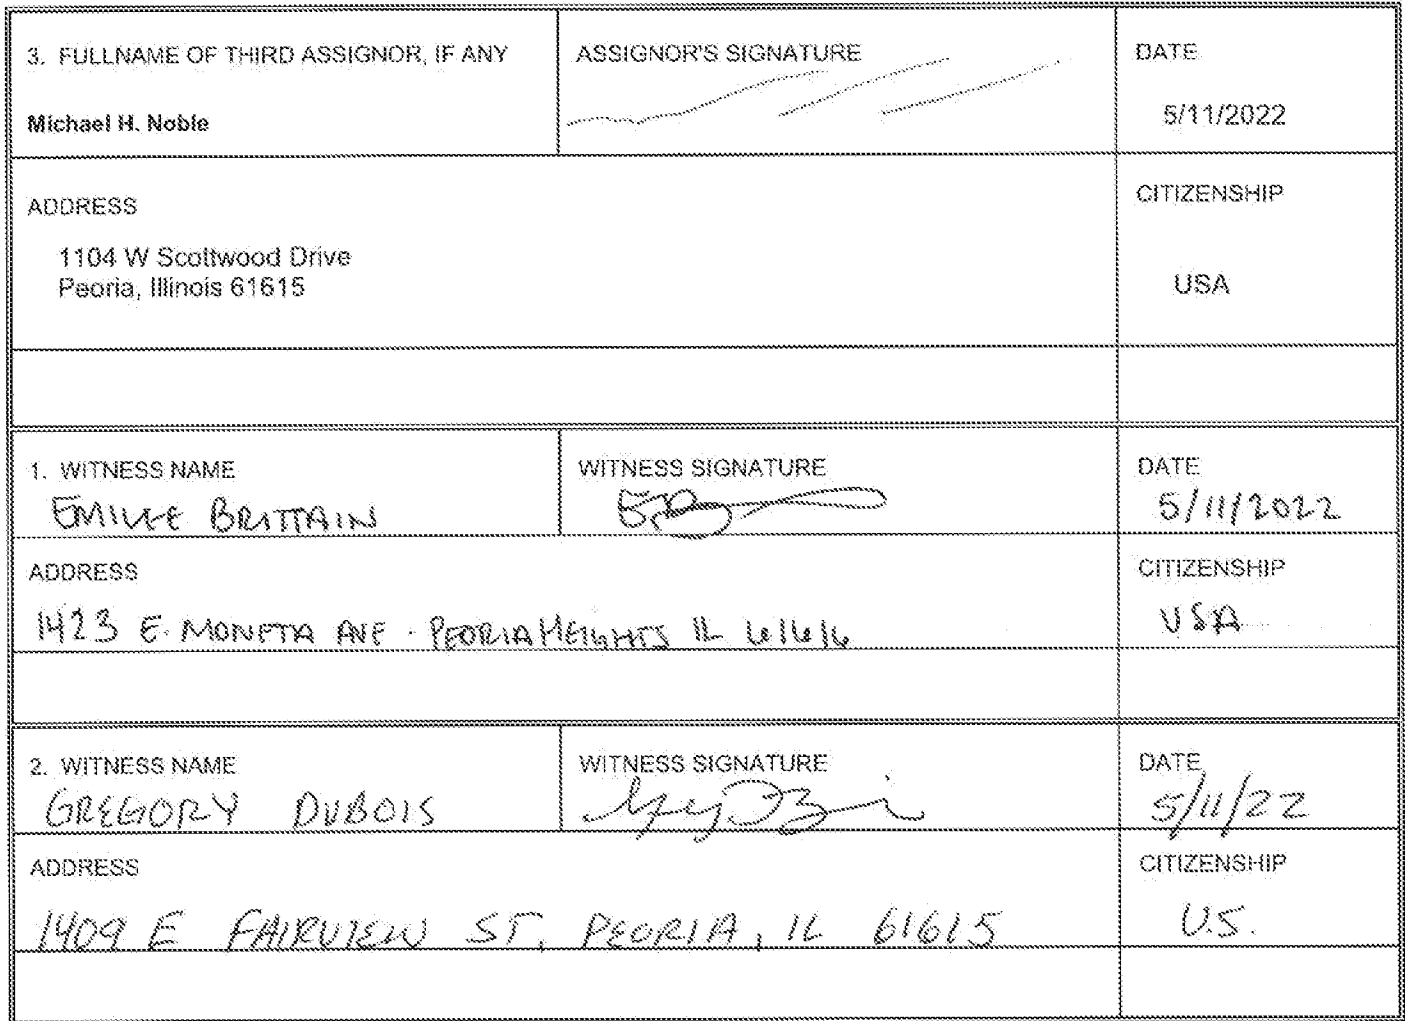 3. FULLNAME OF THIRD ASSIGNOR, IF ANY
Michael H. Noble
ASSIGNOR'S SIGNATURE
DATE
5/11/2022
ADDRESS
1104 W Scottwood Drive
Peoria, Illinois 61615
CITIZENSHIP
USA
1. WITNESS NAME
EMILEE BRITTAIN
WITNESS SIGNATURE
DATE
5/11/2022
ADDRESS
1423 E. MONETA AVE. PEORIA HEIGHTS IL 61616
CITIZENSHIP
USA
2. WITNESS NAME
GREGORY DUBOIS
WITNESS SIGNATURE
DATE
5/11/22
ADDRESS
1409 E FAIRVIEW ST, PEORIA, IL 61615
CITIZENSHIP
U.S.